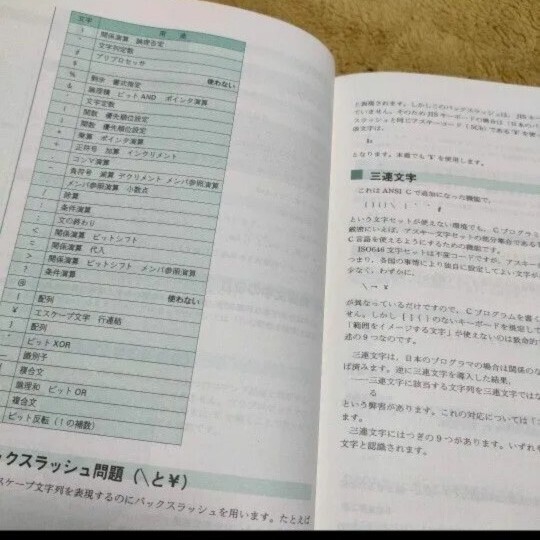 文字 用 途
! 関係演算 論理否定
" 文字列定数
# プリプロセッサ
$ 使わない
% 剰余 書式指定
& 論理積 ビットAND ポインタ演算
' 文字定数
( 関数 優先順位設定
) 関数 優先順位設定
* 乗算 ポインタ演算
+ 正符号 加算 インクリメント
, コンマ演算
- 負符号 減算 デクリメント メンバ参照演算
. メンバ参照演算 小数点
/ 除算
: 条件演算
; 文の終わり
< 関係演算 ビットシフト
= 関係演算 代入
> 関係演算 ビットシフト メンバ参照演算
? 条件演算
@ 使わない
[ 配列
¥ エスケープ文字 行連結
] 配列
^ ビットXOR
_ 識別子
{ 複合文
| 論理和 ビットOR
} 複合文
ビット反転(1の補数)
ックスラッシュ問題(\と¥)
スケープ文字列を表現するのにバックスラッシュを用います。たとえば
となります。本書でも
を使用します。
三連文字
これはANSI Cで追加になった機能で、
という文字セットが使えない環境でも、Cプログラ
厳密にいえば、アスキー文字セットの部分集合である
C言語を使えるようにするための機能です。
ISO646文字セットは不変コードですが、アスキー
つまり、各国の事情により独自に設定してよい文字が
少なく、わずかに、
が異なっているだけですので、Cプログラムを書く
せん。しかし { } [ ] のないキーボードを想定して
「範囲をイメージする文字」が使えないのは致命的
述の9つなのです。
三連文字は、日本のプログラマの場合は関係のな
ば済みます。逆に三連文字を導入した結果、
——三連文字に該当する文字列を三連文字ではな
る
という弊害があります。これの対応については「
ます。
三連文字にはつぎの9つがあります。いずれ
文字と認識されます。